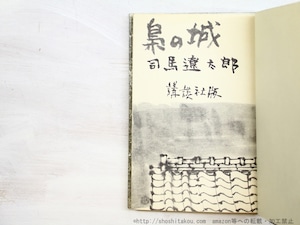 梟の城
司馬遼太郎
講談社版
※http://shashitakou.com amazon等への転載・加工禁止